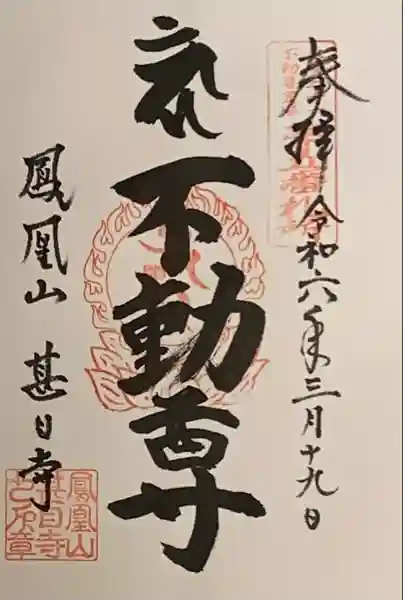 奉拝 令和六年三月十九日
不動尊
鳳凰山 甚目寺
鳳凰山
甚目寺
之印章